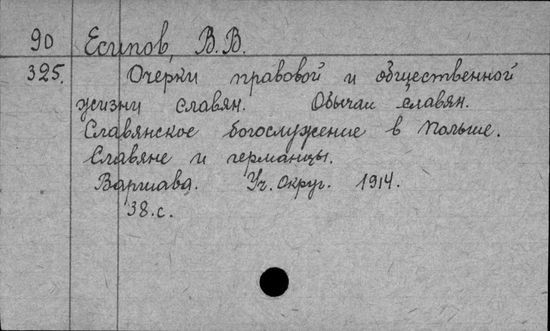 90 Есипов, В.В.
325. Очерки правовой и общественной
жизни славян. Обычаи славян.
Славянское богослужение в Польше.
Славяне и германцы.
Варшава. Уч. Округ. 1914.
38.с.